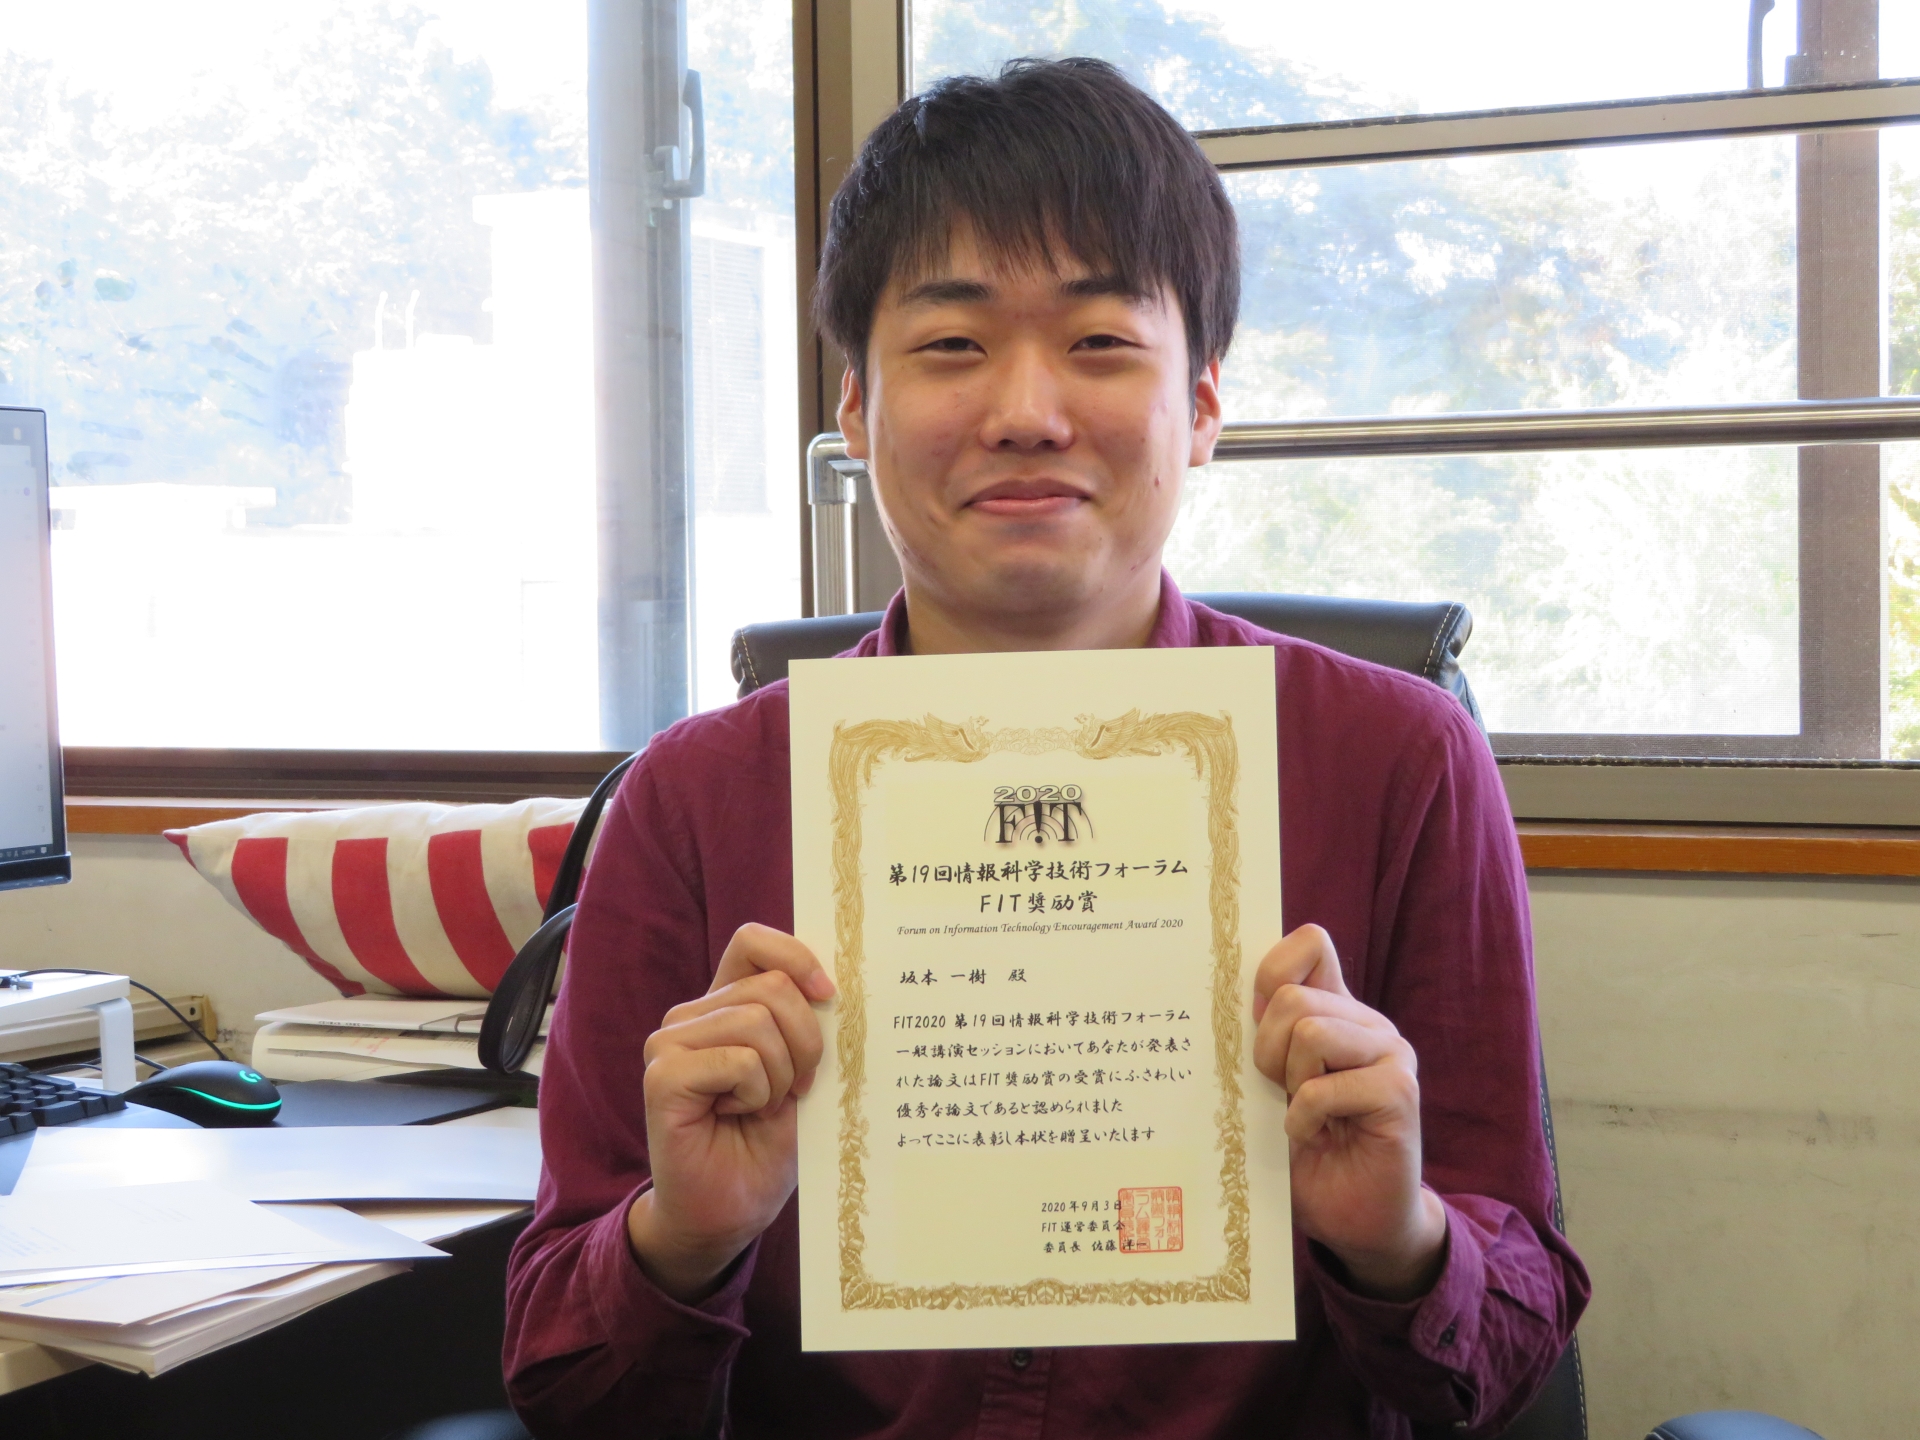 2020
F!T
第19回情報科学技術フォーラム
FIT奨励賞
Forum on Information Technology Encouragement Award 2020
坂本 一樹 殿
FIT2020 第19回情報科学技術フォーラム
一般講演セッションにおいてあなたが発表さ
れた論文はFIT奨励賞の受賞にふさわしい
優秀な論文であると認められました
よってここに表彰し本状を贈呈いたします
2020年9月3日
FIT運営委員会
委員長 佐藤 洋一